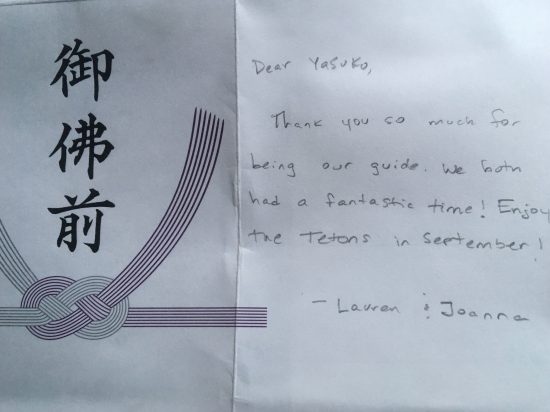 御佛前
Dear Yasuko,
Thank you so much for
being our guide. We both
had a fantastic time! Enjoy
the Tetons in September!
- Lauren & Joanna